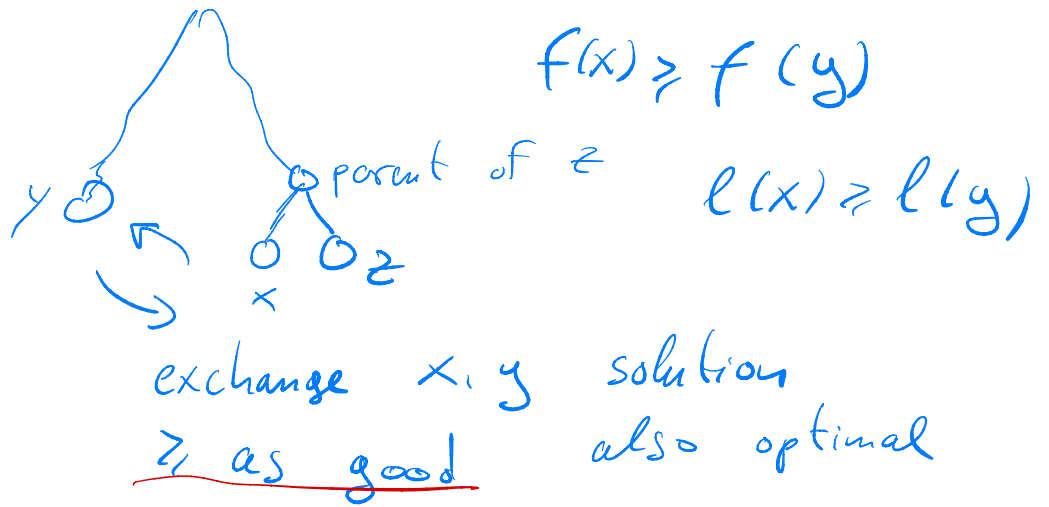 f(x) ≥ f(y)
parent of z
l(x) ≥ l(y)
y
z
x
exchange x, y solution
≥ as good also optimal